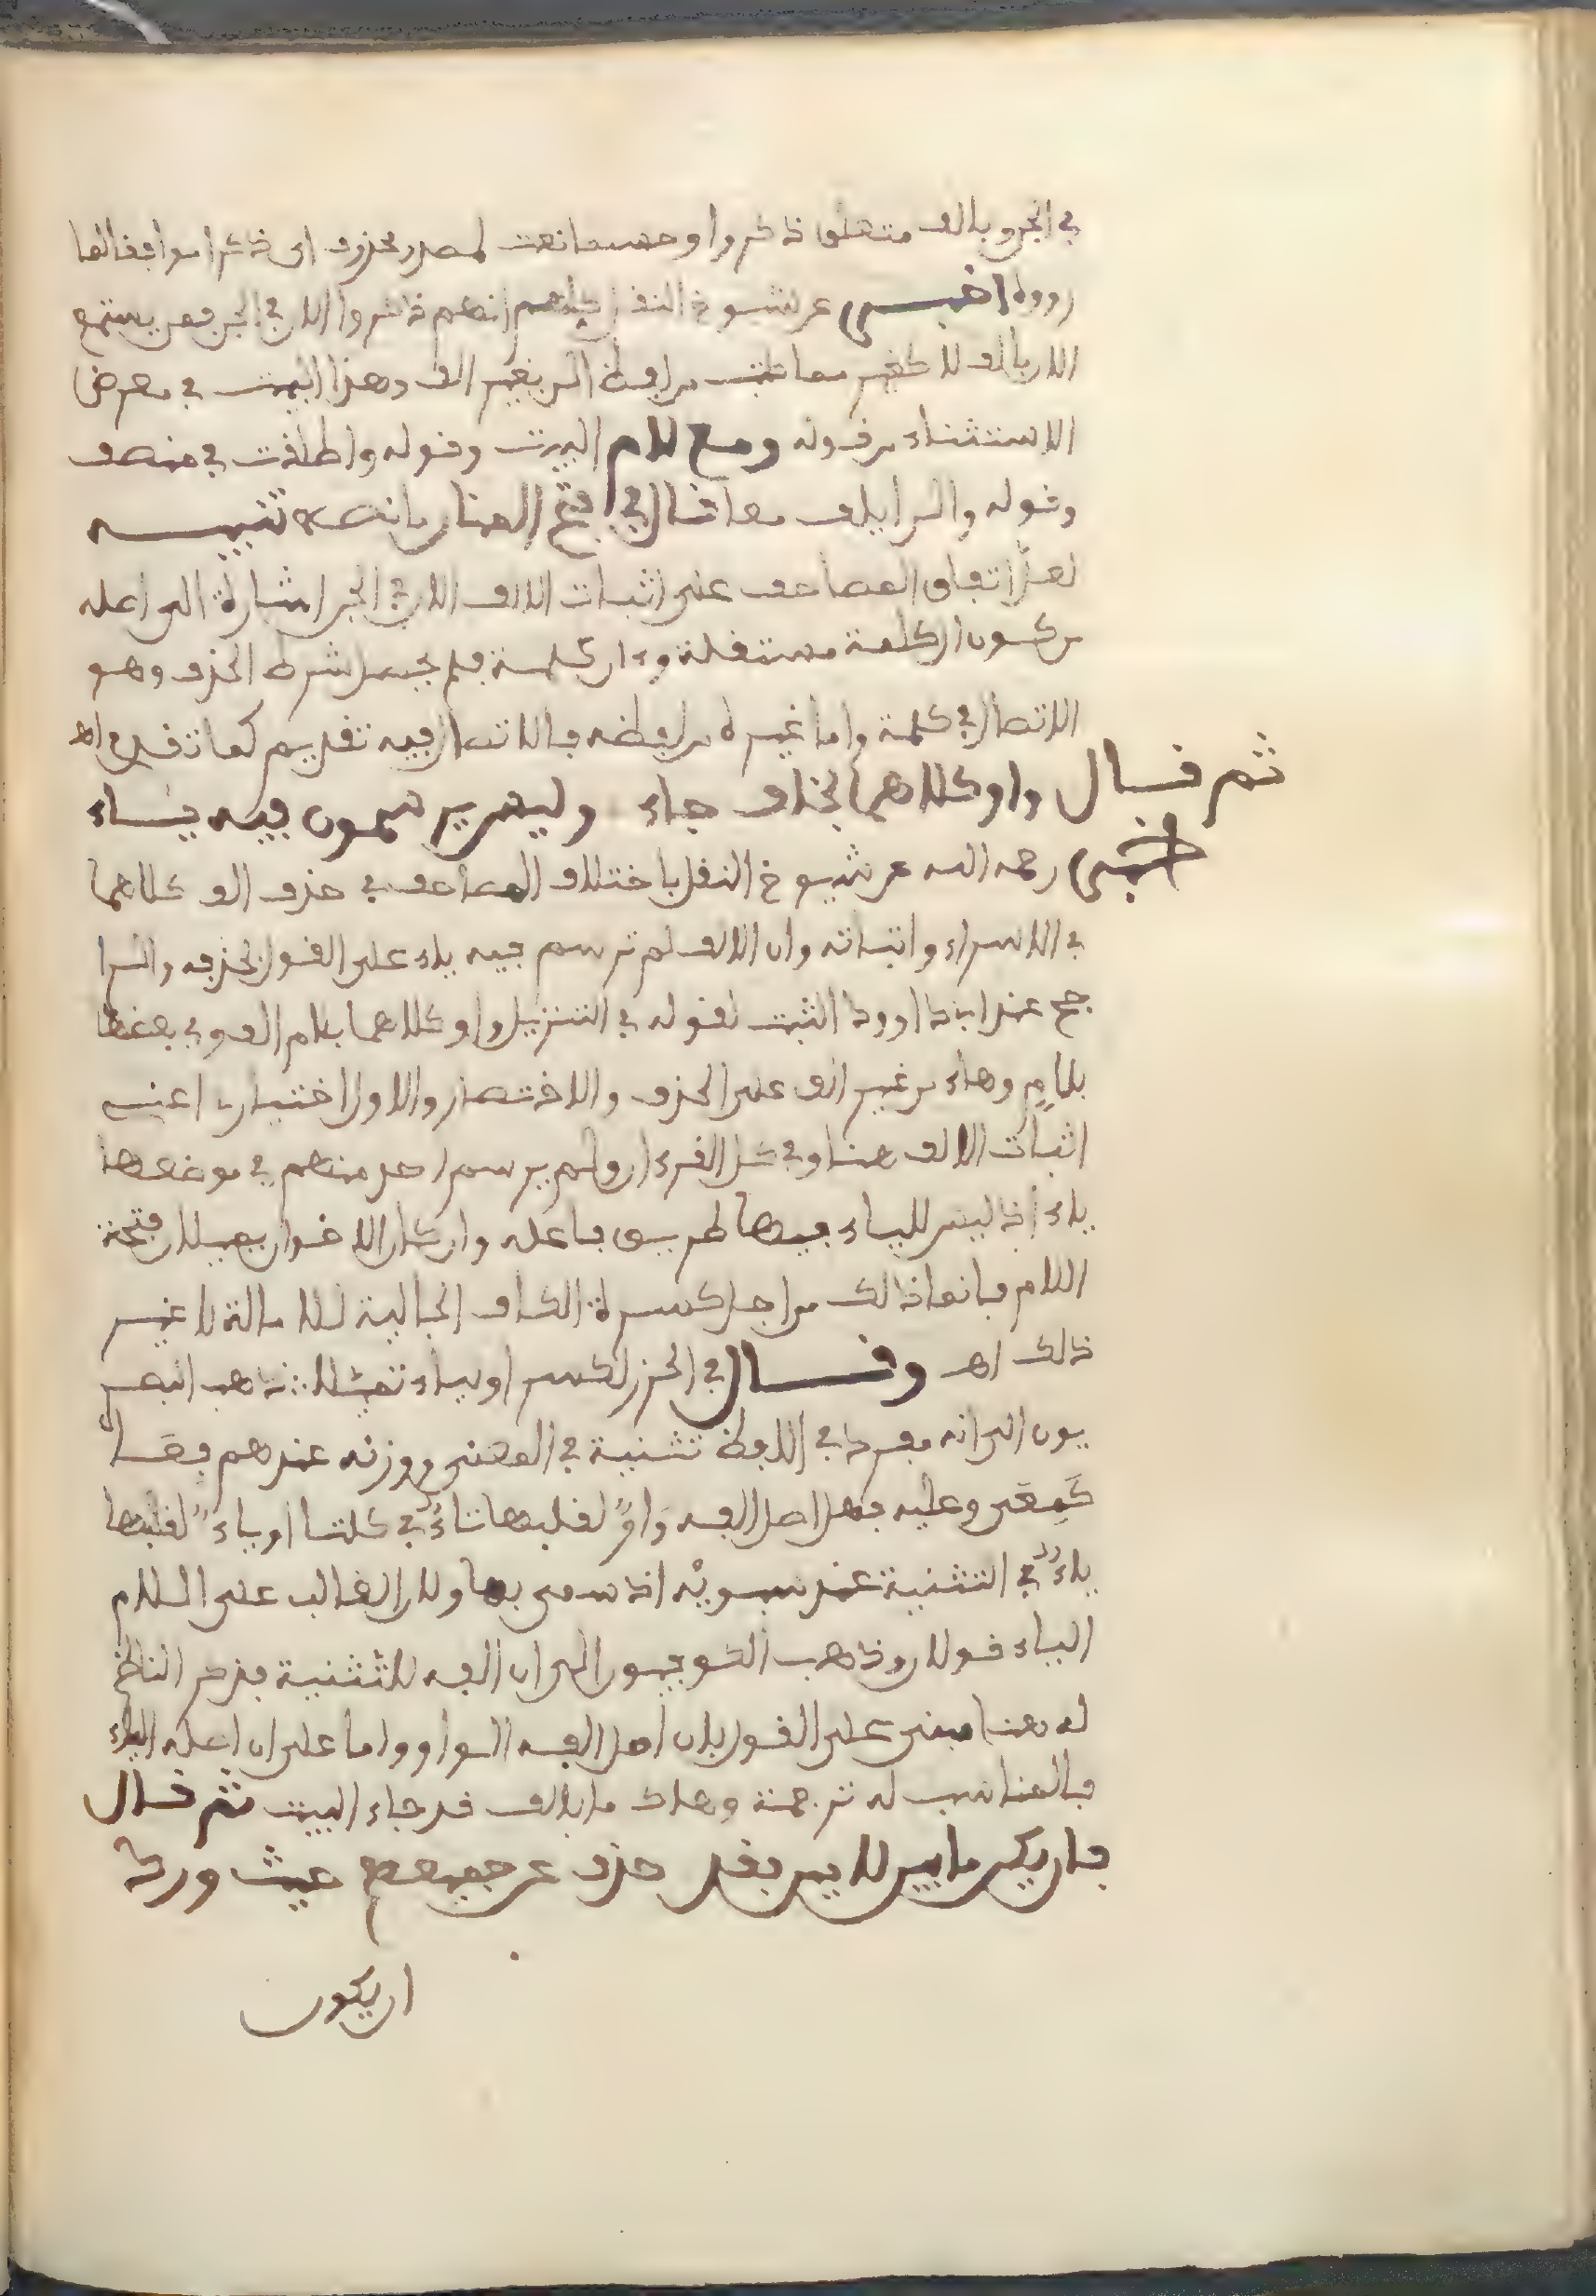 في الجن وبالف متعلق ذكروا وحسبما نعت لمصدر محذوف اي ذكرا موافقا لما
رووه اخبر عن شيوخ النقل كلهم انهم ذكروا الان في الجن فمن يستمع
الان بالف لا كغير مما كتب من لفظ الن بغير الف وهذا البيت في معرض
الاستثناء من قوله ومع لام البيت وقوله واطلقت في منصف
وقوله والن ايلف معا قال في فتح المنان بانت تنبيه
لعل اتفاق المصاحف على اثبات الالف الان في الجن اشارة الى اصله
من كون ال كلمة مستقلة وءان كلمة فلم يحصل شرط الحذف وهو
الاتصال في كلمة واما غيره من لفظه فالاتصال فيه تقديم كما تقدم اه
ثم قال واو كلاهما بخلاف جاء وليس يرسمون فيه ياء
اخبر رحمه الله عن شيوخ النقل باختلاف المصاحف في حذف الف كلاهما
في الاسراء واثباته وان الالف لم ترسم فيه ياء على القول بحذفه والرا
جح عند ابي داوود الثبت لقوله في التنزيل واو كلاهما بلام الف وفي بعضها
بلام وهاء من غير الف على الحذف والاختصار والاول اختياري اعني
اثبات الالف هنا وفي كل القرءان ولم يرسم احد منهم في موضعها
ياء اذ ليس للياء فيها طريق فاعله وان كان الاخوان يميلان فتحة
اللام فانما ذلك من اجل كسرة الكاف الجالبة للامالة لا غير
ذلك اه وقال في الحرز لكسر او لياء تميلا ∴ ذهب البصر
يون الى انه مفرد في اللفظ تثنية في المعنى ووزنه عندهم فعل
كمعى وعليه فهل اصل الفه واو لقلبها تاء في كلتا او ياء لقلبها
ياء في التثنية عند سيبويه اذا سمي بها ولان الغالب على اللام
الياء قولان وذهب الكوفيون الى ان الفه للتثنية فذكر الناظم
له هنا مبني على القول بان اصل الفه الواو واما على ان اصله الياء
فالمناسب له ترجمة وهاك ما بالف قد جاء البيت ثم قال
فان يكن ما بين لامين فقد حذف عن جميعهم حيث ورد
ان يكون